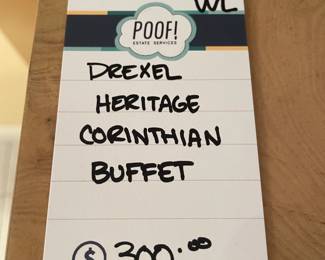 WL
POOF!
ESTATE SERVICES
DREXEL
HERITAGE
CORINTHIAN
BUFFET
$ 300.00